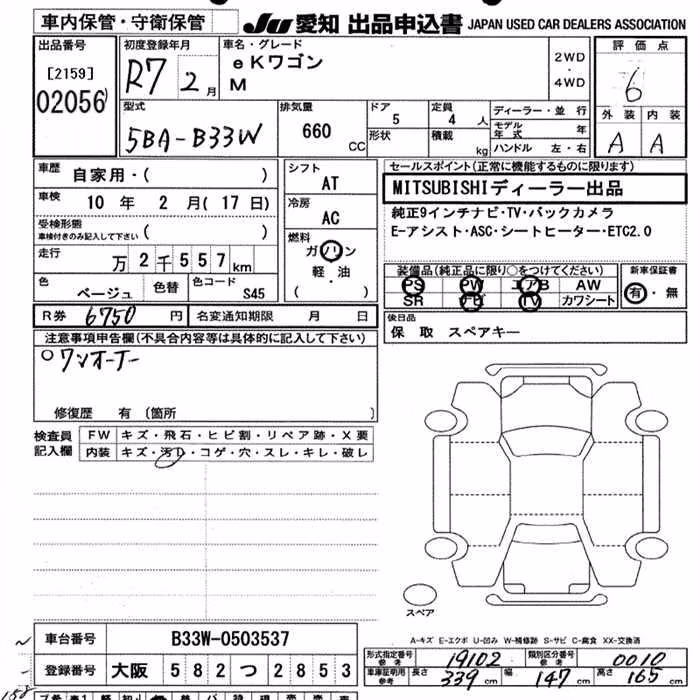 車内保管・守衛保管
JU 愛知 出品申込書 JAPAN USED CAR DEALERS ASSOCIATION
出品番号
[2159]
02056
初度登録年月
R7 2月
車名・グレード
eKワゴン
M
2WD
・
4WD
評価点
6
外装 内装
A A
型式
5BA-B33W
排気量
660 CC
ドア
5
形状
定員
4 人
積載
kg
ディーラー・並行
モデル年式 年
ハンドル 左・右
車歴 自家用・( )
車検 10 年 2 月(17日)
受検形態
車検付きのみ記入して下さい ( )
走行 万2千557km
色 ベージュ 色替 色コード S45
シフト
AT
冷房
AC
燃料
ガソリン
軽・油
( )
セールスポイント(正常に機能するものに限ります)
MITSUBISHIディーラー出品
純正9インチナビ・TV・バックカメラ
E-アシスト・ASC・シートヒーター・ETC2.0
装備品(純正品に限り○をつけてください)
PS PW エアB AW
SR ナビ TV カワシート
新車保証書
有・無
R券 6750 円 名変通知期限 月 日
後日品
保 取 スペアキー
注意事項申告欄(不具合内容等は具体的に記入して下さい)
○ワンオーナー
修復歴 有 (箇所 )
検査員
記入欄
FW キズ・飛石・ヒビ割・リペア跡・X要
内装 キズ・汚レ・コゲ・穴・スレ・キレ・破レ
スペア
A-キズ E-エクボ U-凹み W-補修跡 S-サビ C-腐食 XX-交換済
車台番号 B33W-0503537
登録番号 大阪 582 つ 2853
形式指定番号
参考
19102
類別区分番号
参考
0010
車庫証明用
参考
長さ 339 cm 幅 147 cm 高さ 165 cm